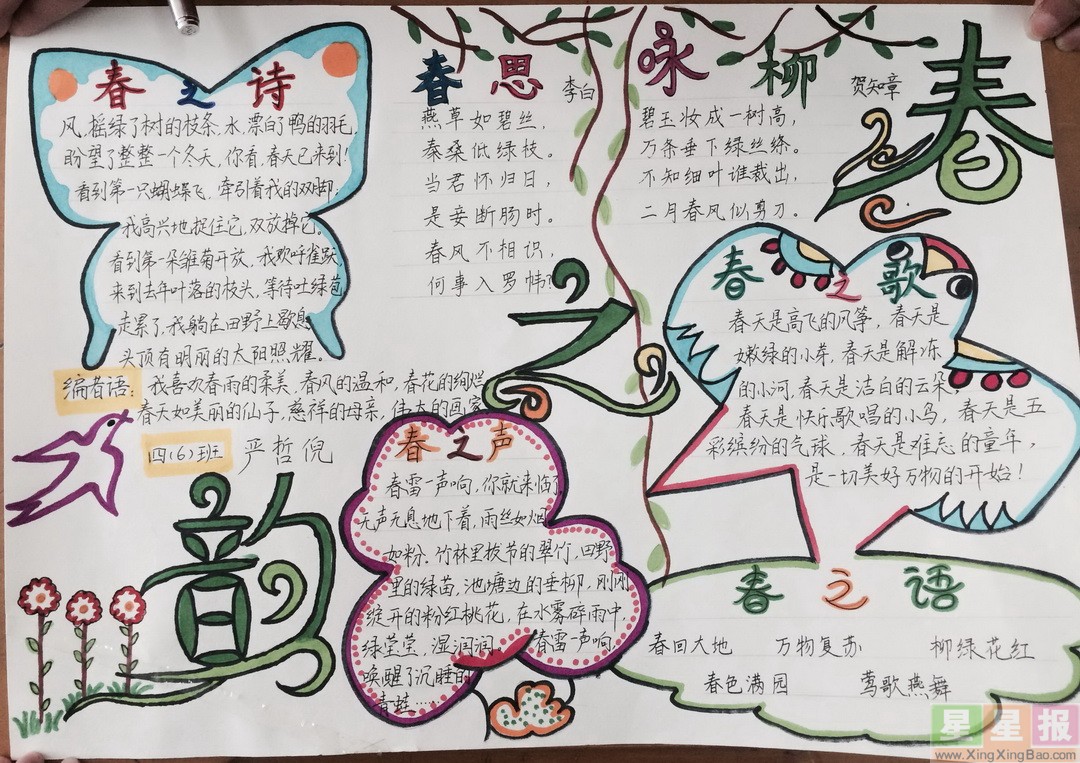 春之诗
风,摇绿了树的枝条,水,漂白了鸭的羽毛,
盼望了整整一个冬天,你看,春天已来到!
看到第一只蝴蝶飞,牵引着我的双脚;
我高兴地捉住它,又放掉它。
看到第一朵雏菊开放,我欢呼雀跃,
来到去年叶落的枝头,等待吐绿苞,
走累了,我躺在田野上歇息,
头顶有明丽的太阳照耀。
编者语:我喜欢春雨的柔美,春风的温和,春花的绚烂
春天如美丽的仙子,慈祥的母亲,伟大的画家
四(6)班 严哲倪
春思
李白
燕草如碧丝,
秦桑低绿枝。
当君怀归日,
是妾断肠时。
春风不相识,
何事入罗帏?
咏柳
贺知章
碧玉妆成一树高,
万条垂下绿丝绦。
不知细叶谁裁出,
二月春风似剪刀。
春
之
韵
春之歌
春天是高飞的风筝,春天是
嫩绿的小芽,春天是解冻
的小河,春天是洁白的云朵,
春天是快乐歌唱的小鸟,春天是五
彩缤纷的气球,春天是难忘的童年,
是一切美好万物的开始!
春之声
春雷一声响,你就来临了,
无声无息地下着,雨丝如烟
如粉。竹林里拔节的翠竹,田野
里的绿苗,池塘边的垂柳,刚刚
绽开的粉红桃花,在水雾碎雨中,
绿莹莹,湿润润。春雷一声响,
唤醒了沉睡的
青蛙……
春之语
春回大地 万物复苏 柳绿花红
春色满园 莺歌燕舞
星星报
www.XingXingBao.com